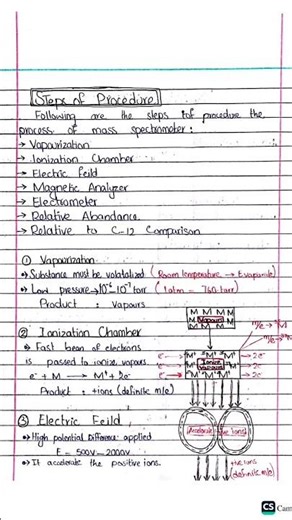 Steps of Procedure
Following are the steps of procedure the
process of mass spectrometer :
→ Vapourization
→ Ionization Chamber
→ Electric feild
→ Magnetic Analyzer
→ Electrometer
→ Relative Abandance.
→ Relative to C-12 Comparison
① Vapourization
→ Substance must be volatalized (Room temperature → Evaporate)
→ Low pressure → 10⁻⁶ 10⁻⁷ torr (1 atm - 760 torr)
Product : Vapours
M M M M
M Vapours M
M M M
② Ionization Chamber
→ Fast bean of electrons
is passed to ionize vapours
e⁻ + M → M⁺ + 2e⁻
Product : +ions (definite m/e)
m/e → M
m/e → M
e⁻ → M⁺ M⁺ M⁺ → 2e⁻
e⁻ → M⁺ Ionize vapours M⁺ → 2e⁻
e⁻ → M⁺ M⁺ M⁺ → 2e⁻
③ Electric Feild
→ High potential Difference applied
E - 500V - 2000V
→ It accelerate the positive ions.
Accelerate +ve ions
+ve ions
(definite m/e)
CS Cam